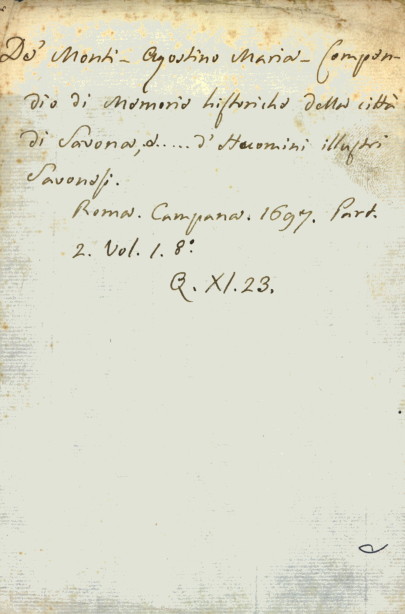 De' Monti - Agostino Maria - Compen-
dio di Memorie historiche della città
di Savona, e..... d'Huomini illustri
Savonesi.
Roma. Campana. 1697. Part.
2. Vol. 1. 8°.
Q. XI. 23.